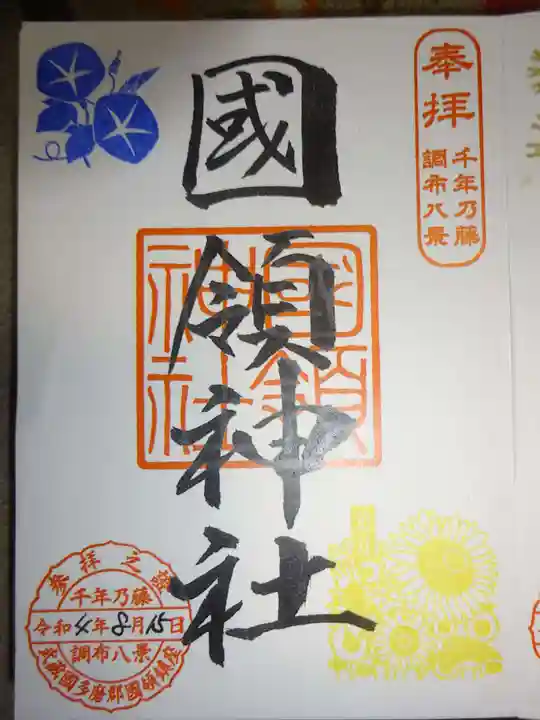 奉拝
千年乃藤
調布八景
國領神社
國領
神社
参拝之証
千年乃藤
令和4年8月15日
調布八景
武蔵國多磨郡國領鎮座